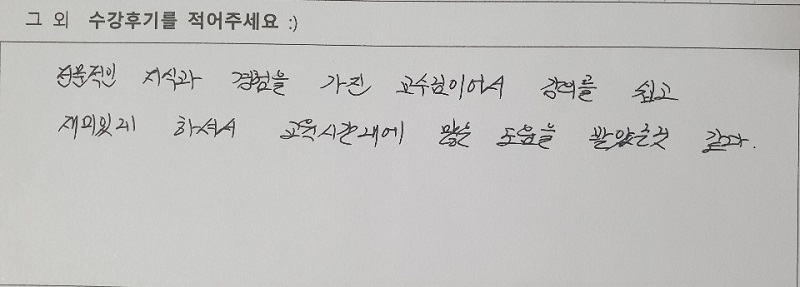 그 외 수강후기를 적어주세요 :)
전문적인 지식과 경험을 가진 교수님이어서 강의를 쉽고
재미있게 하셔서 교육시간내에 많은 도움을 받았는것 같다.